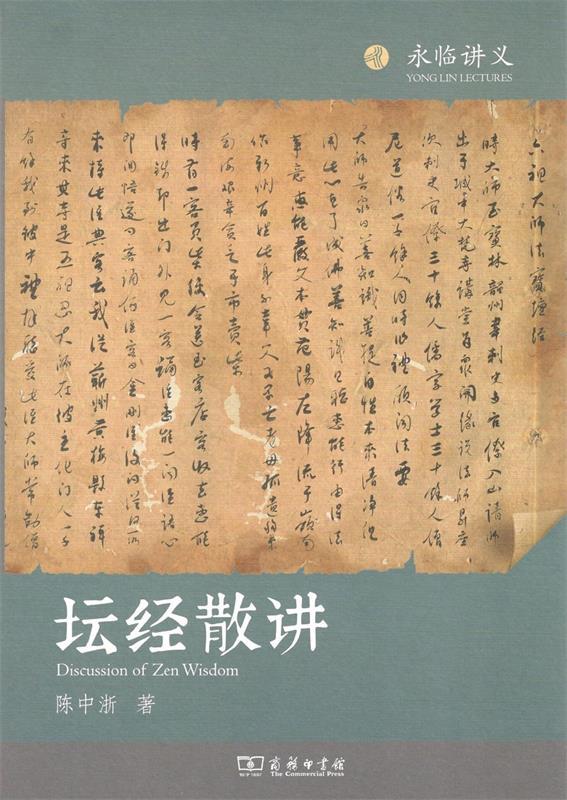 永临讲义
YONG LIN LECTURES
六祖大師法寶壇經
時大師至寶林韶州韋刺史与官僚入山請師
出於城中大梵寺講堂為眾開緣說法師昇座
次刺史官僚三十餘人儒宗學士三十餘人僧
尼道俗一千餘人同時作禮願聞法要
大師告眾曰善知識菩提自性本來清淨但
用此心直了成佛善知識且聽惠能行由得法
事意惠能嚴父本貫范陽左降流于嶺南
作新州百姓此身不幸父又早亡老母孤遺移來
南海艱辛貧乏於市賣柴
時有一客買柴使令送至客店客收去惠能
得錢却出門外見一客誦經惠能一聞經語心
即開悟遂問客誦何經客曰金剛經復問從何所
來持此經典客云我從蘄州黃梅縣東禪
寺來其寺是五祖忍大師在彼主化門人一千
有餘我到彼中禮拜聽受此經大師常勸僧
坛经散讲
Discussion of Zen Wisdom
陈中浙 著
商務印書館
The Commercial Press